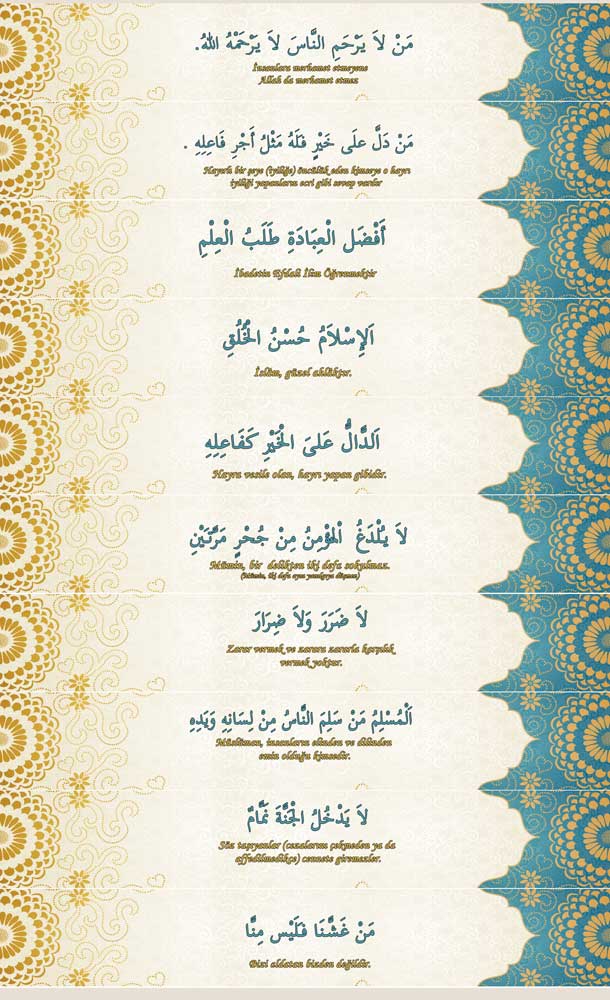 مَنْ لاَ يَرْحَمِ النَّاسَ لاَ يَرْحَمْهُ اللهُ.
İnsanlara merhamet etmeyene
Allah da merhamet etmez
مَنْ دَلَّ علَى خَيْرٍ فلَهُ مَثْلُ أَجْرِ فَاعِلِهِ .
Hayırlı bir şeye (iyiliğe) öncülük eden kimseye o hayrı
iyiliği yapanların ecri gibi sevap vardır
أَفْضَل الْعِبَادَةِ طَلَبُ الْعِلْمِ
İbadetin Efdali İlim Öğrenmektir
اَلإِسْلاَمُ حُسْنُ الْخُلُقِ
İslâm, güzel ahlâktır.
اَلدَّالُّ عَلىَ الْخَيْرِ كَفَاعِلِهِ
Hayra vesile olan, hayrı yapan gibidir.
لاَ يُلْدَغُ اْلمُؤْمِنُ مِنْ جُحْرٍ مَرَّتَيْنِ
Mümin, bir delikten iki defa sokulmaz.
(Mümin, iki defa aynı yanılgıya düşmez)
لاَ ضَرَرَ وَلاَ ضِرَارَ
Zarar vermek ve zarara zararla karşılık
vermek yoktur.
اَلْمُسْلِمُ مَنْ سَلِمَ النَّاسُ مِنْ لِسَانِهِ وَيَدِهِ
Müslüman, insanların elinden ve dilinden
emin olduğu kimsedir.
لاَ يَدْخُلُ الْجَنَّةَ نَمَّامٌ
Söz taşıyanlar (cezalarını çekmeden ya da
affedilmedikçe) cennete giremezler.
مَنْ غَشَّنَا فَلَيْس مِنَّا
Bizi aldatan bizden değildir.